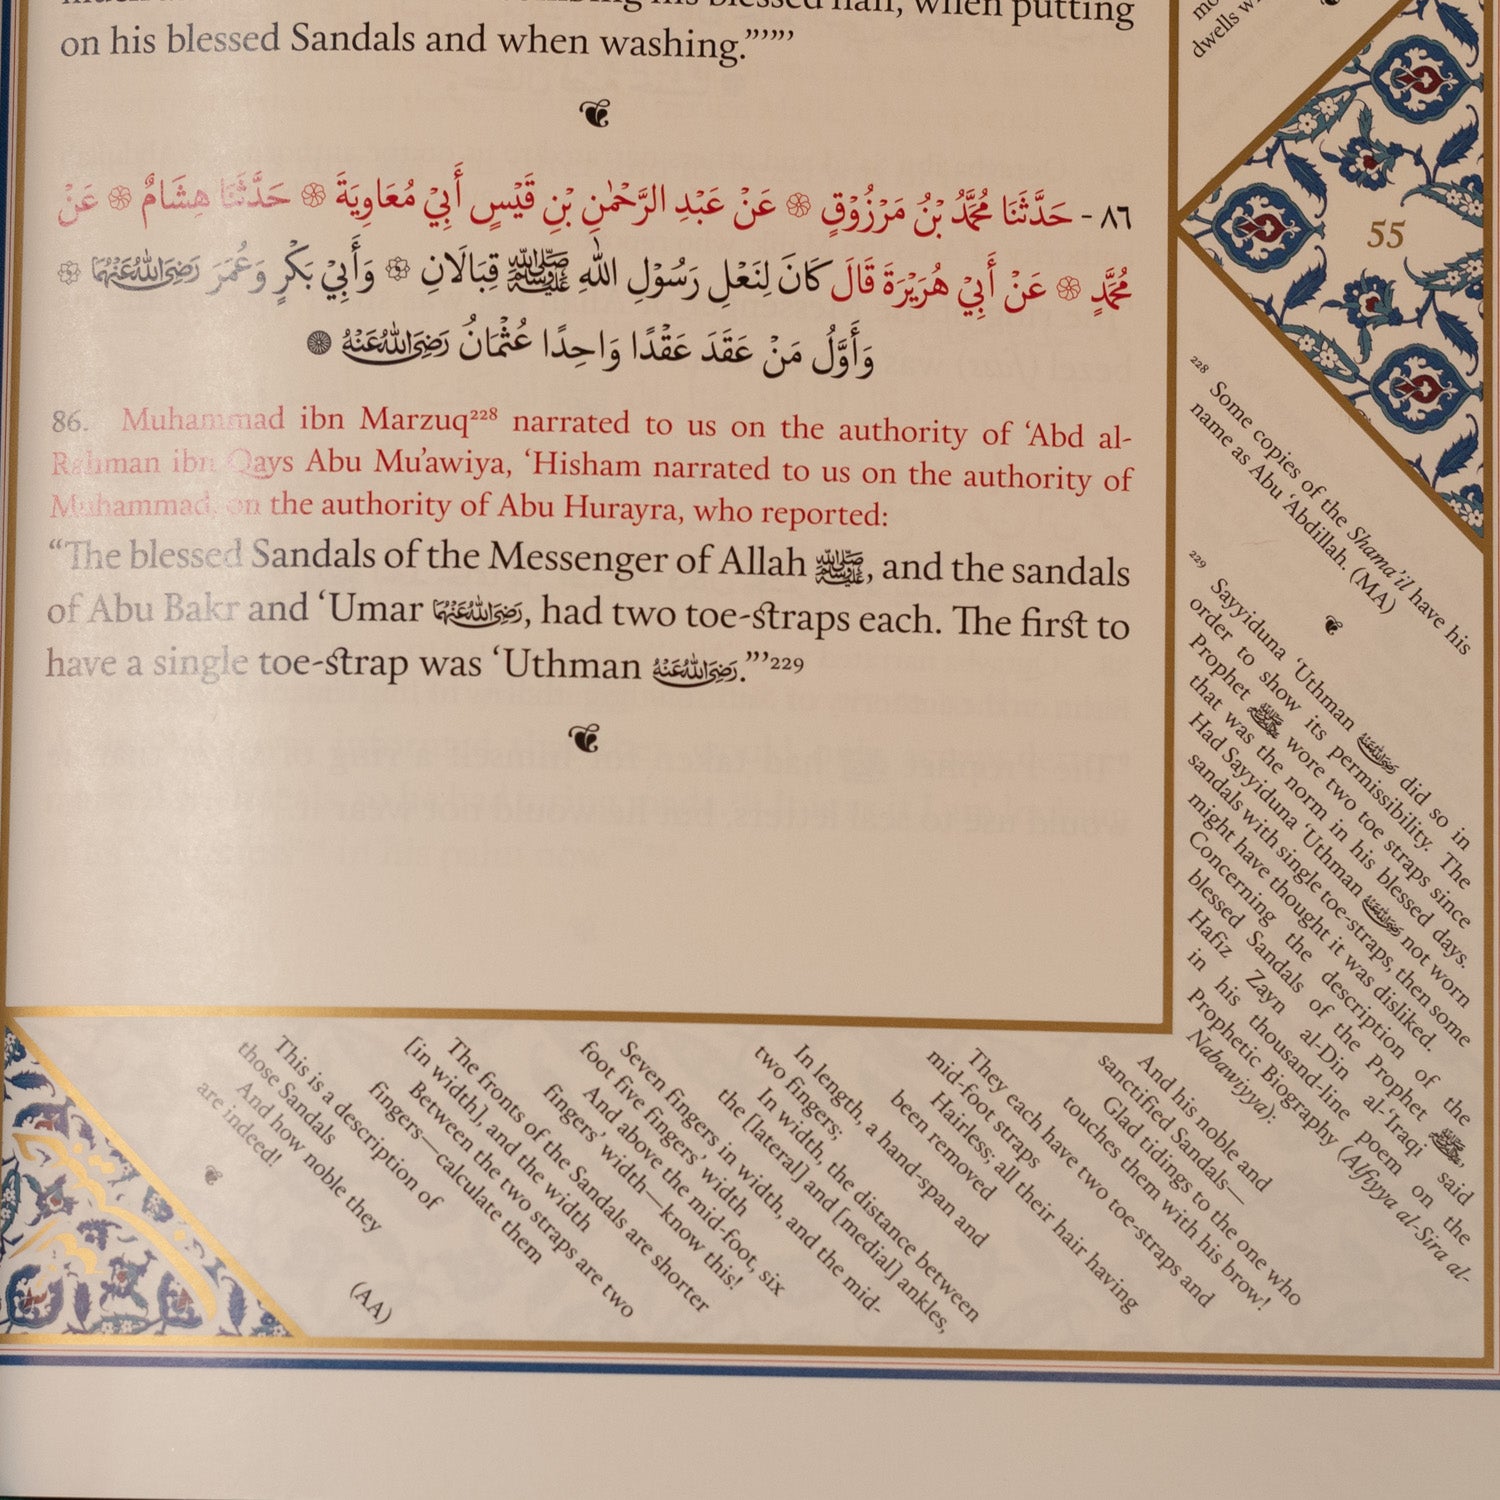 his blessed hair, when putting
on his blessed Sandals and when washing.”’”’
٨٦ - حَدَّثَنَا مُحَمَّدُ بْنُ مَرْزُوْقٍ ۞ عَنْ عَبْدِ الرَّحْمٰنِ بْنِ قَيْسٍ أَبِيْ مُعَاوِيَةَ ۞ حَدَّثَنَا هِشَامٌ ۞ عَنْ
مُحَمَّدٍ ۞ عَنْ أَبِيْ هُرَيْرَةَ قَالَ كَانَ لِنَعْلِ رَسُوْلِ اللهِ ﷺ قِبَالَانِ ۞ وَأَبِيْ بَكْرٍ وَعُمَرَ رَضِيَ اللهُ عَنْهُمَا ۞
وَأَوَّلُ مَنْ عَقَدَ عَقْدًا وَاحِدًا عُثْمَانُ رَضِيَ اللهُ عَنْهُ ۞
86. Muhammad ibn Marzuq²²⁸ narrated to us on the authority of ‘Abd al-
Rahman ibn Qays Abu Mu’awiya, ‘Hisham narrated to us on the authority of
Muhammad, on the authority of Abu Hurayra, who reported:
“The blessed Sandals of the Messenger of Allah ﷺ, and the sandals
of Abu Bakr and ‘Umar رَضِيَ اللهُ عَنْهُمَا, had two toe-straps each. The first to
have a single toe-strap was ‘Uthman رَضِيَ اللهُ عَنْهُ.”’²²⁹
dwells
55
²²⁸ Some copies of the Shama’il have his
name as Abu ‘Abdillah. (MA)
²²⁹ Sayyiduna ‘Uthman رَضِيَ اللهُ عَنْهُ did so in
order to show its permissibility. The
Prophet ﷺ wore two toe straps since
that was the norm in his blessed days.
Had Sayyiduna ‘Uthman رَضِيَ اللهُ عَنْهُ not worn
sandals with single toe-straps, then some
might have thought it was disliked.
Concerning the description of the
blessed Sandals of the Prophet ﷺ,
Hafiz Zayn al-Din al-‘Iraqi said
in his thousand-line poem on the
Prophetic Biography (Alfiyya al-Sira al-
Nabawiyya):
And his noble and
sanctified Sandals—
Glad tidings to the one who
touches them with his brow!
They each have two toe-straps and
mid-foot straps
Hairless; all their hair having
been removed
In length, a hand-span and
two fingers;
In width, the distance between
the [lateral] and [medial] ankles,
Seven fingers in width, and the mid-
foot five fingers’ width
And above the mid-foot, six
fingers’ width—know this!
The fronts of the Sandals are shorter
[in width], and the width
Between the two straps are two
fingers—calculate them
This is a description of
those Sandals
And how noble they
are indeed!
(AA)